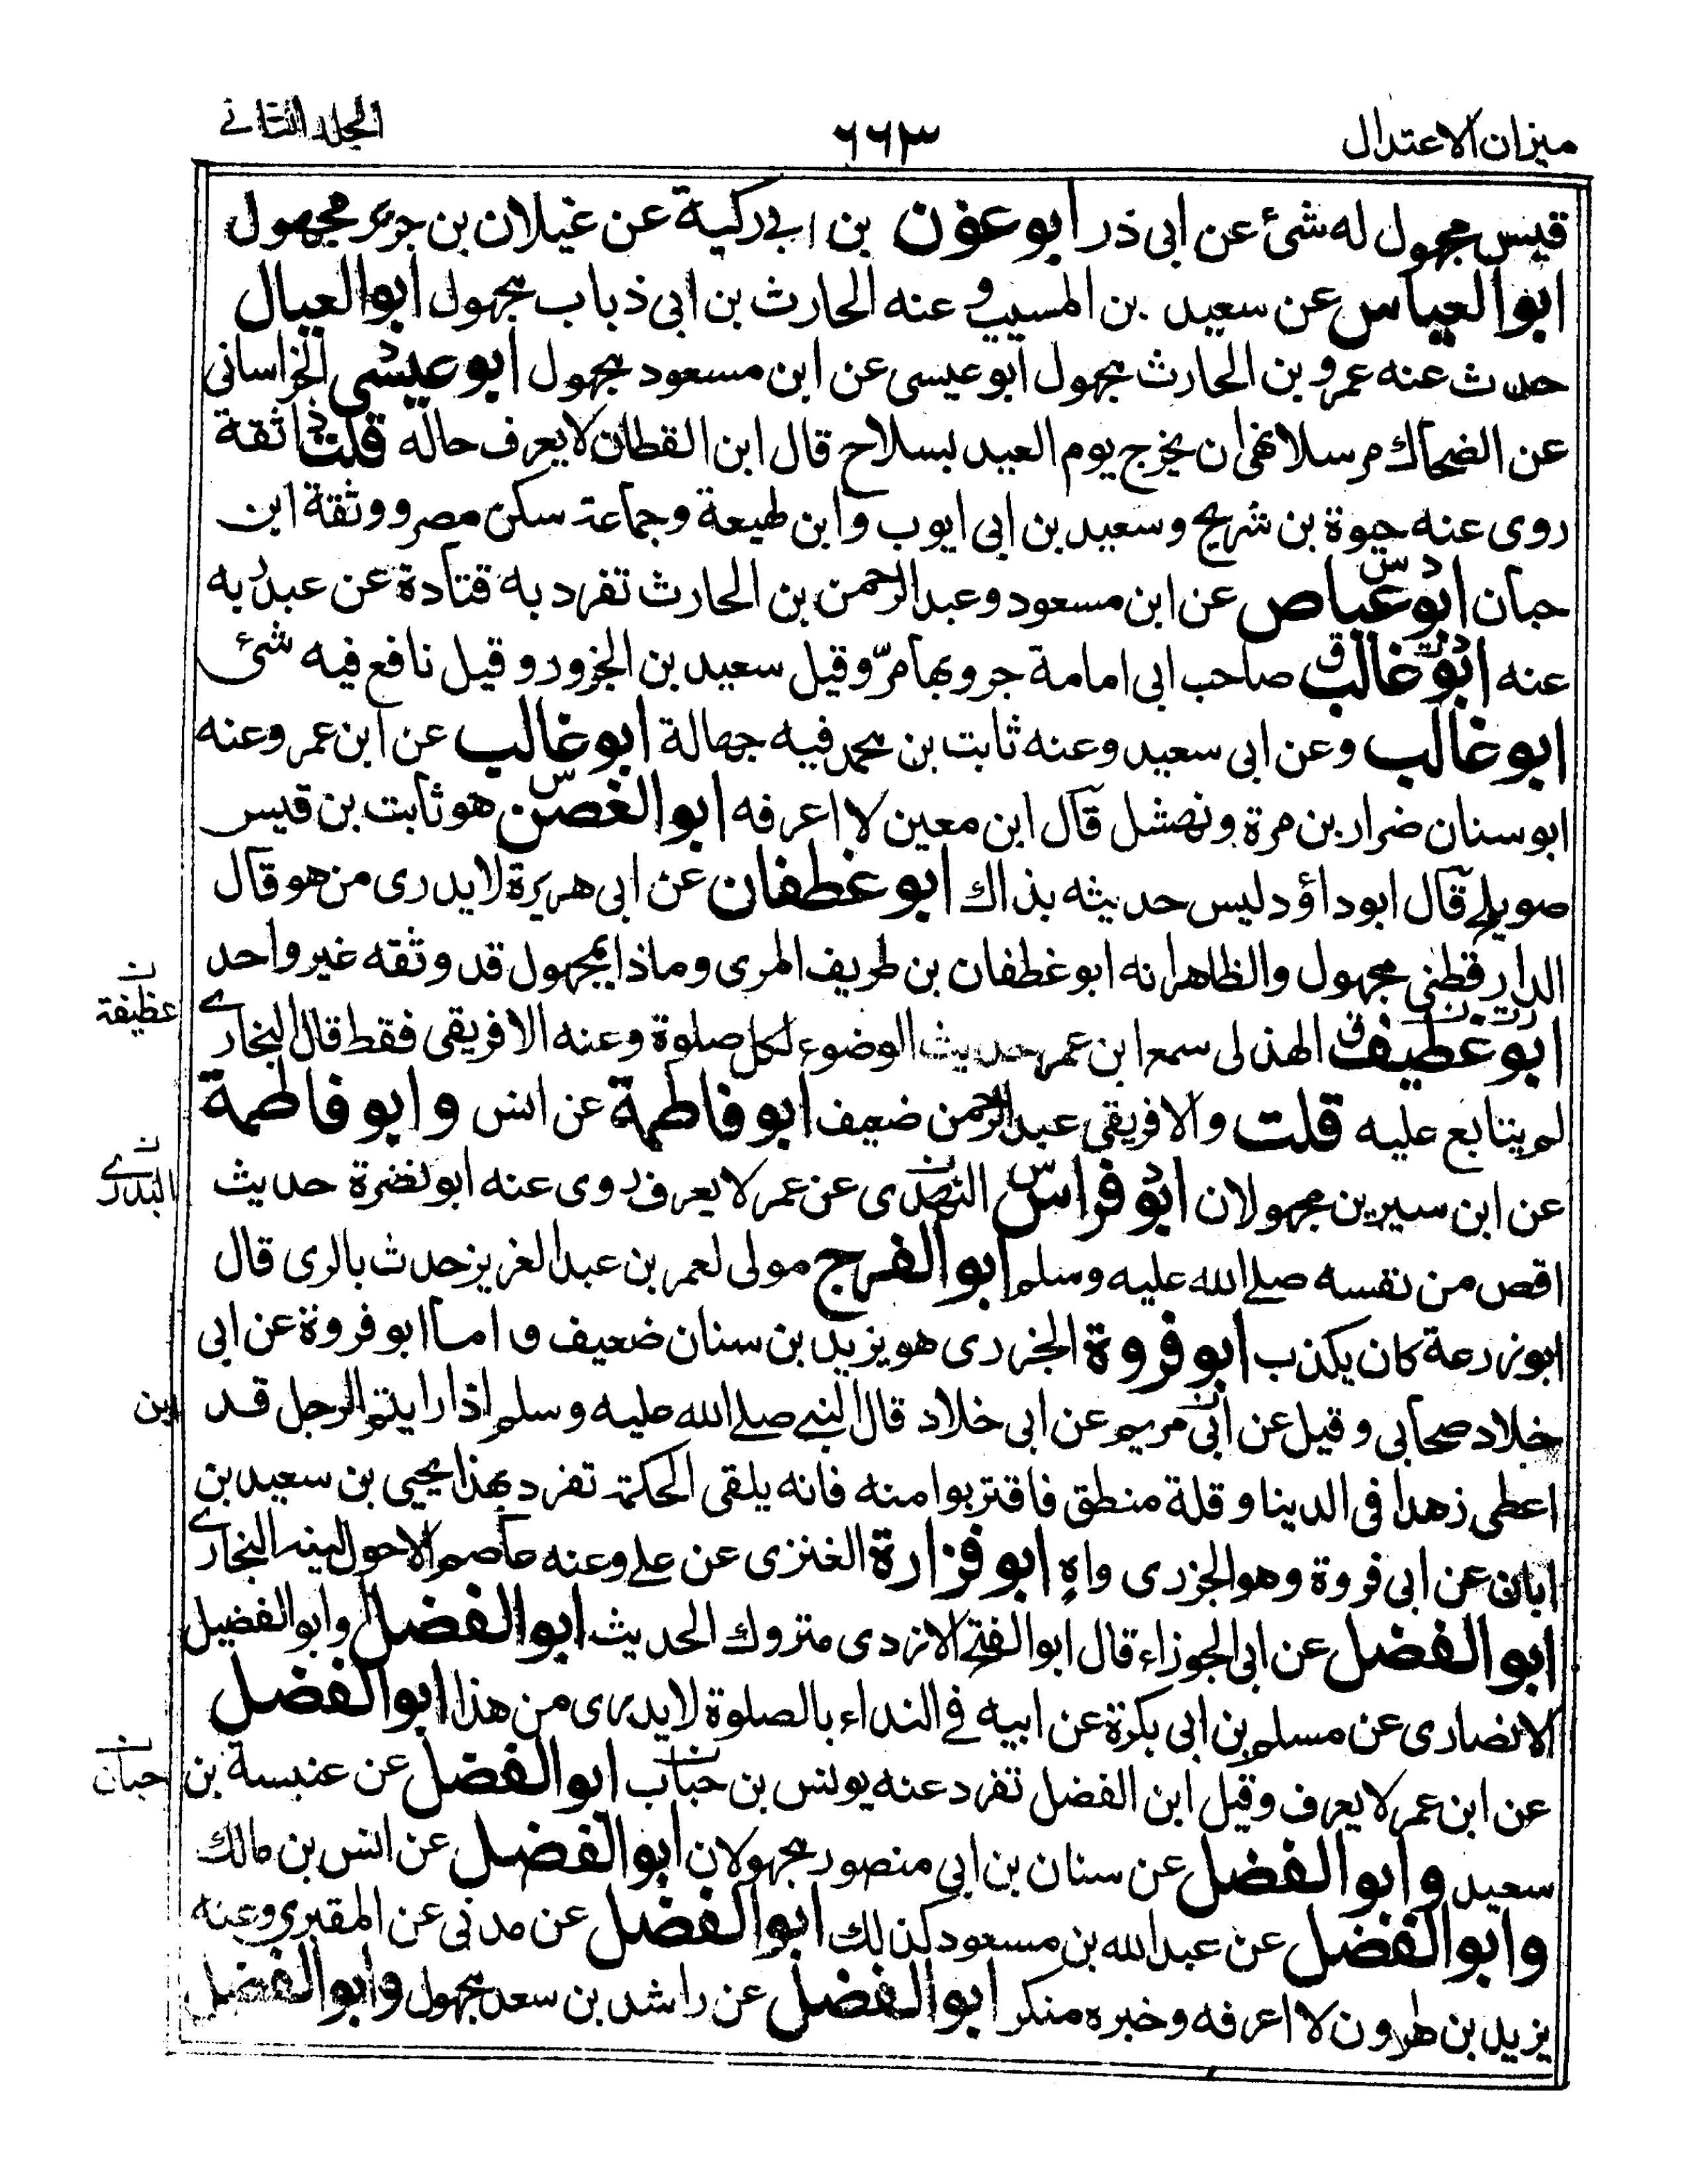 ميزان الاعتدال
٦٦٣
الجلد الثاني
قيس مجهول له شئ عن ابى ذر ابو عون بن ابي ركية عن غيلان بن جرير مجهول
ابو العياس عن سعيد بن المسيب و عنه الحارث بن ابى ذباب مجهول ابو العيال
حدث عنه عمرو بن الحارث مجهول ابو عيسى عن ابن مسعود مجهول ابو عيسى الخراسانى
عن الضحاك مرسلا نهى ان يخرج يوم العيد بسلاح قال ابن القطان لا يعرف حاله قلت ذا ثقة
روى عنه حيوة بن شريح و سعيد بن ابى ايوب وابن لهيعة وجماعة سكن مصر ووثقة ابن
حبان ابو عياض عن ابن مسعود و عبد الرحمن بن الحارث تفرد به قتادة عن عبد ربه
عنه ابو غالب صاحب ابى امامة حزور بهامر وقيل سعيد بن الحزور و قيل نافع فيه شئ
ابو غالب وعن ابى سعيد وعنه ثابت بن محمد فيه جهالة ابو غالب عن ابن عمر وعنه
ابو سنان ضرار بن مرة ونهشل قال ابن معين لا اعرفه ابو الغصن هو ثابت بن قيس
صويلح قال ابو داؤد ليس حديثه بذاك ابو غطفان عن ابى هريرة لا يدرى من هو قال
الدارقطني مجهول والظاهر انه ابو غطفان بن طريف المرى وماذا بمجهول قد وثقه غير واحد
ابو غطيف الهذلى سمع ابن عمر حديث الوضوء لكل صلوة وعنه الافريقى فقط قال البخارى
لم يتابع عليه قلت والافريقى عبد الرحمن ضعيف ابو فاطمة عن انس وابو فاطمة
عن ابن سيرين مجهولان ابو فراس النهدى عن عمر لا يعرف روى عنه ابو نضرة حديث
اقص من نفسه صلى الله عليه وسلم ابو الفرج مولى لعمر بن عبد العزيز حدث بالرى قال
ابو زرعة كان يكذب ابو فروة الجزرى هو يزيد بن سنان ضعيف و اما ابو فروة عن ابى
خلاد صحابى وقيل عن ابى مريم عن ابى خلاد قال النبى صلى الله عليه وسلم اذا رايتم الرجل قد
اعطى زهدا فى الدينا و قلة منطق فاقتربوا منه فانه يلقى الحكمة تفرد بهذا يحيى بن سعيد بن
ابان عن ابى فروة وهو الجزرى واه ابو فزارة العنزى عن على وعنه عاصم الاحول لينه البخارى
ابو الفضل عن ابى الجوزاء قال ابو الفتح الازدى متروك الحديث ابو الفضل وابو الفضيل
الانصارى عن مسلم بن ابى بكرة عن ابيه في النداء بالصلوة لا يدرى من هذا ابو الفضل
عن ابن عمر لا يعرف وقيل ابن الفضل تفرد عنه يونس بن خباب ابو الفضل عن عنبسة بن
سعيد وابو الفضل عن سنان بن ابى منصور مجهولان ابو الفضل عن انس بن مالك
وابو الفضل عن عبد الله بن مسعود كذلك ابو الفضل عن مدنى عن المقبرى وعنه
يزيد بن هارون لا اعرفه وخبره منكر ابو الفضل عن راشد بن سعد مجهول وابو الفضل
عظيفة
البدرى
ابن
حبان